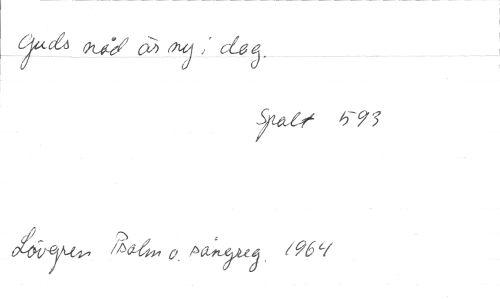 Guds nåd är ny i dag.
Spalt 593
Lövgren Psalm o. sångreg. 1964